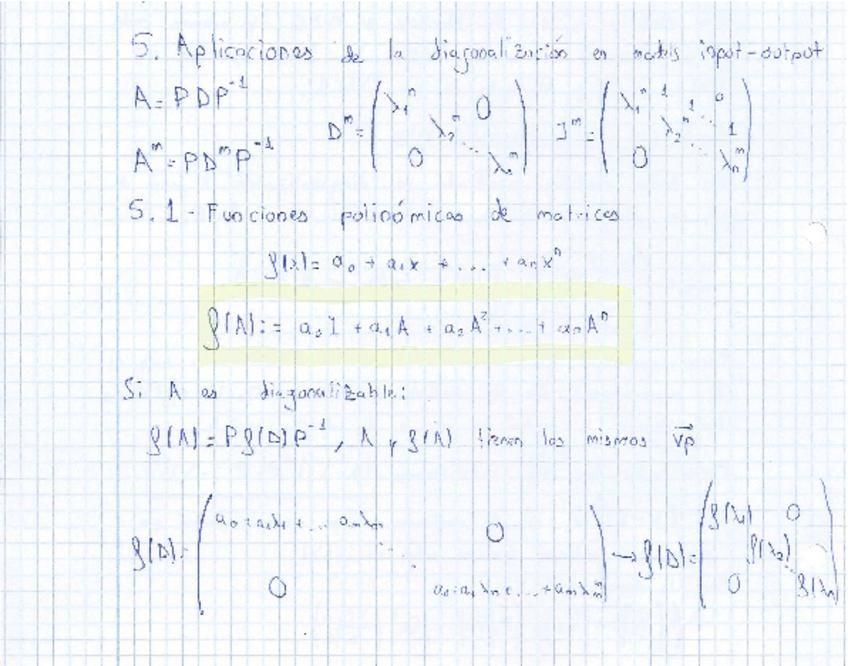 5. Aplicaciones de la diagonalización en models input-output
A = PDP⁻¹
Aᵐ = PDᵐP⁻¹
Dᵐ = ( λ₁ⁿ λ₂ⁿ ⋱ λₙⁿ 0 0 )
Jᵐ = ( λ₁ⁿ 1 λ₂ⁿ 1 ⋱ 1 λₙᵐ 0 0 )
5.1 - Funciones polinómicas de matrices
f(x) = a₀ + a₁x + ... + aₙxⁿ
f(A) := a₀I + a₁A + a₂A² + ... + aₙAⁿ
Si A es diagonalizable:
f(A) = Pf(D)P⁻¹, A y f(A) tienen los mismos v⃗p
f(D) = ( a₀ + a₁λ₁ + ... 0 ⋱ 0 ) → f(D) = ( f(λ₁) 0 f(λ₂) ⋱ 0 f(λₙ) )